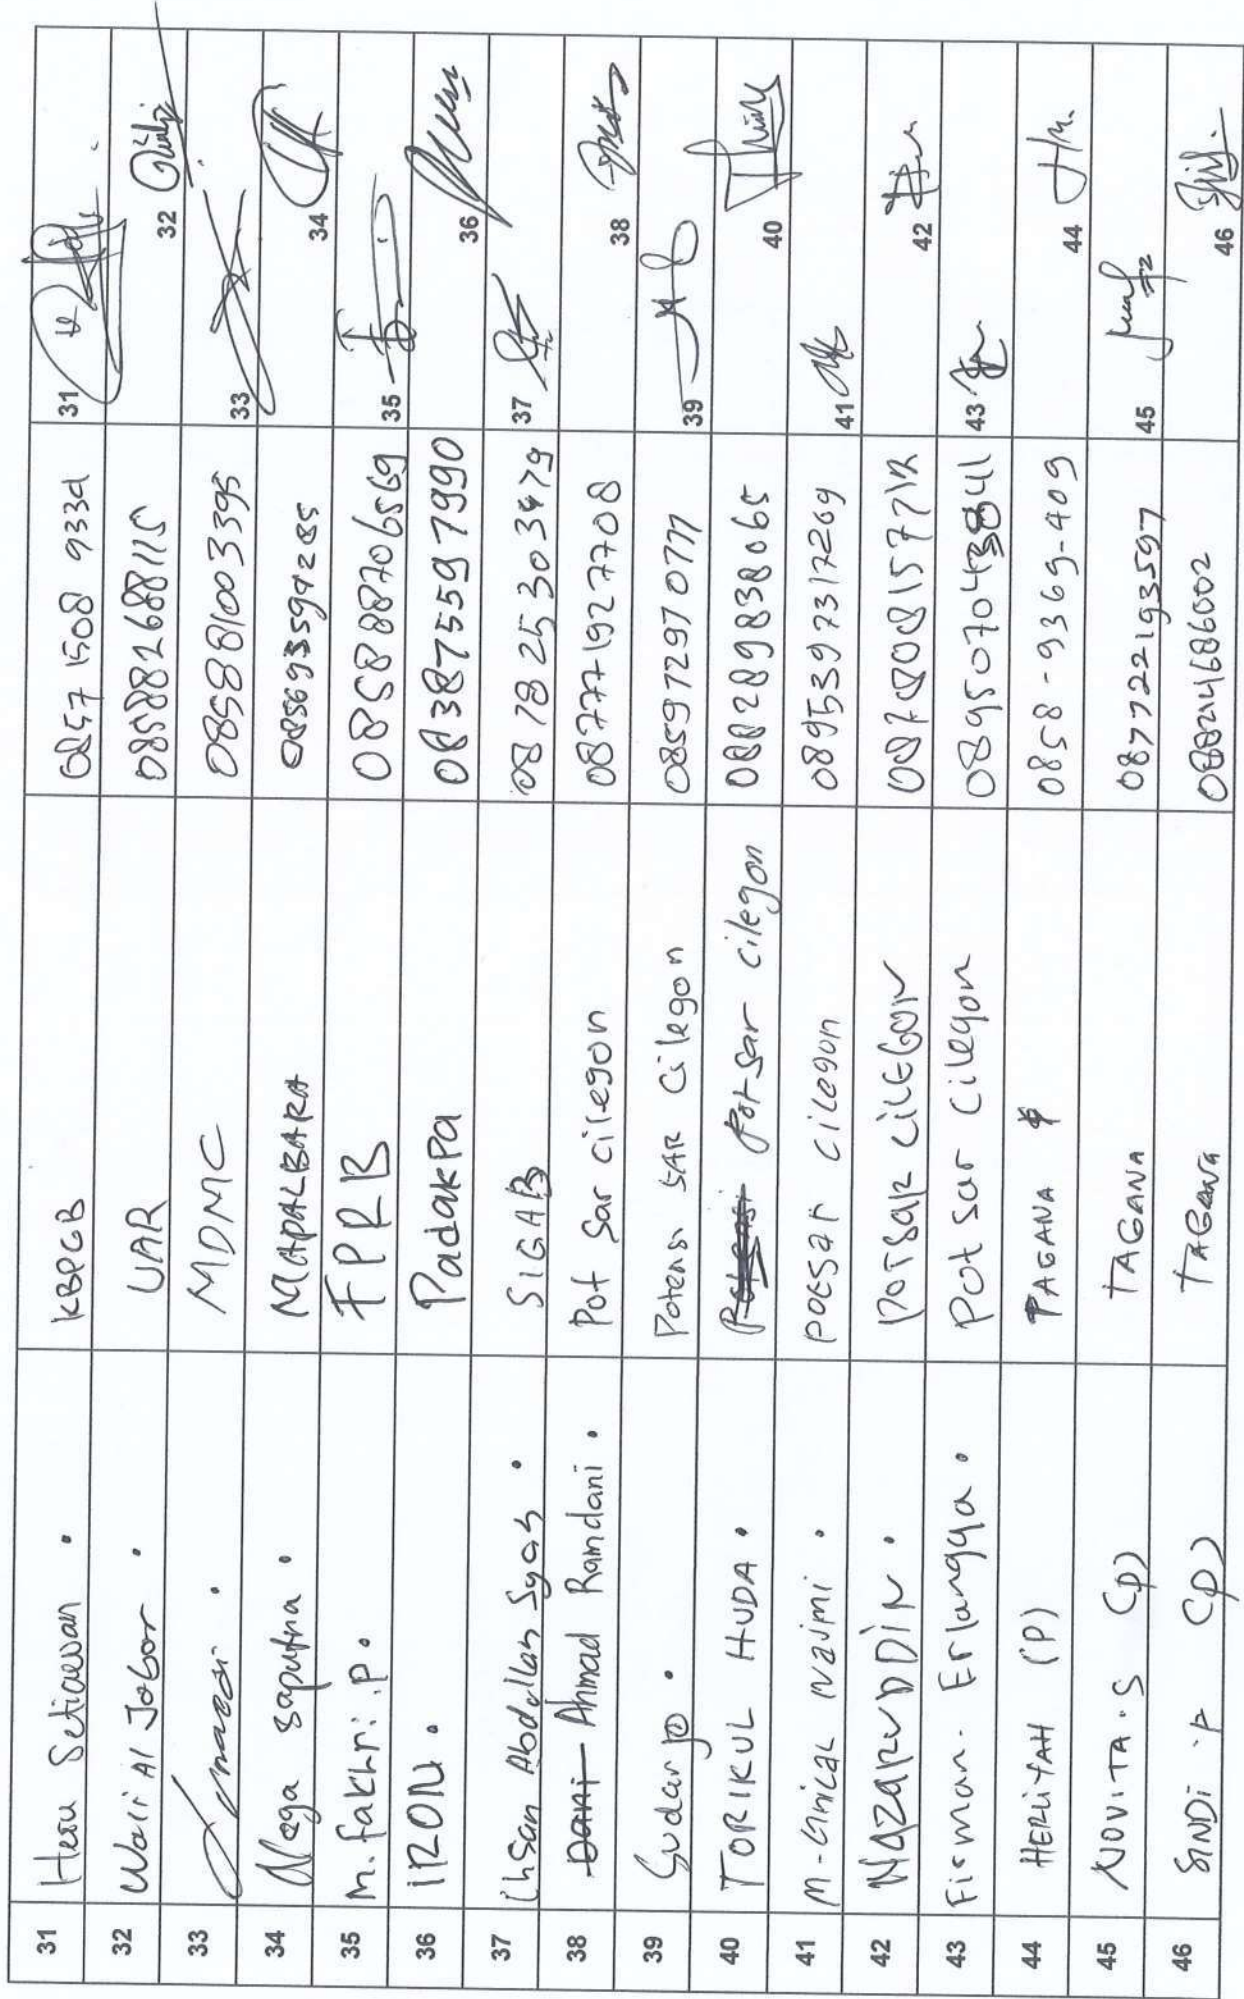 31 Heru Setiawan . KBPCB 0857 1508 933d 31
32 Wali Al Jabor . UAR 085882688115 32
33 MDMC 085881003395 33
34 Mega Saputra . MAPALBARA 085693594285 34
35 M. fakhri . P. FPRB 085888706569 35
36 IRON . PadakPa 083875597990 36
37 Ihsan Abdellah Syah . SIGAB 087825303479 37
38 Dani Ahmad Ramdani . Pot Sar cilegon 087771927708 38
39 Sudarjo . Potensi SAR Cilegon 39
40 TORIKUL HUDA . Potsar cilegon 088289838065 40
41 M- POESAR CILEGON 0895397317269 41
42 NAZARUDDIN . POTSAR CILEGON 42
43 Firman. Erlangga . Pot Sar Cilegon 43
44 HERLIYAH (P) TAGANA 0858-9369-409 44
45 NOVITA . S (P) TAGANA 087722193597 45
46 SINDI . P (P) TAGANA 088214686002 46